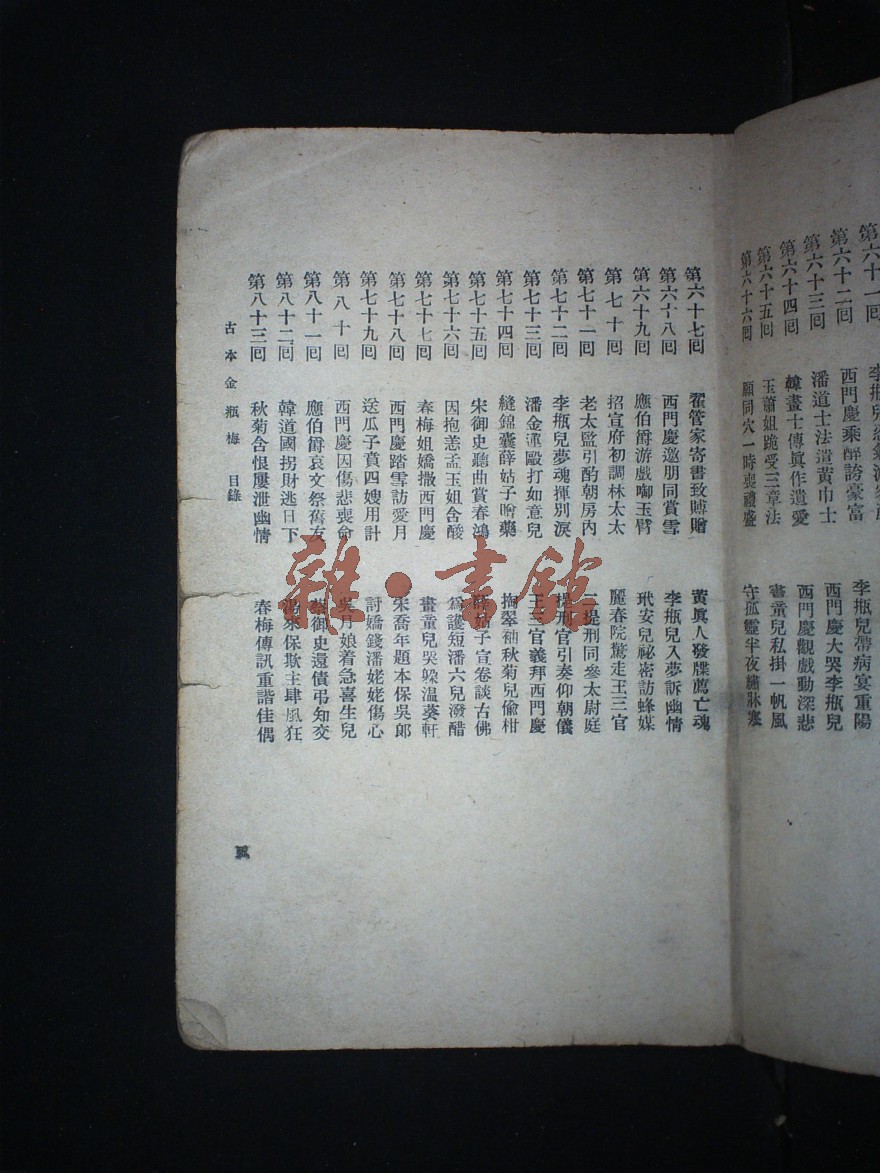 第六十一回
第六十二回 西門慶乘醉誇豪富 西門慶大哭李瓶兒
第六十三回 潘道士法遣黃巾士 西門慶觀戲動深悲
第六十四回 韓畫士傳眞作遺愛 書童兒私掛一帆風
第六十五回 玉蕭姐跪受三章法
第六十六回 願同穴一時喪禮盛 守孤靈半夜
李瓶兒帶病宴重陽
第六十七回 翟管家寄書致賻贈 黃眞人發牒薦亡魂
第六十八回 西門慶邀朋同賞雪 李瓶兒入夢訴幽情
第六十九回 應伯爵游戲啣玉臂 玳安兒祕密訪蜂媒
第七十回 招宣府初調林太太 麗春院驚走王三官
第七十一回 老太監引酌朝房內 二提刑同參太尉庭
第七十二回 李瓶兒夢魂揮別淚 提刑官引奏仰朝儀
第七十三回 潘金蓮毆打如意兒 王三官義拜西門慶
第七十四回 縫錦囊薛姑子贈藥 掏翠袖秋菊兒偷柑
第七十五回 宋御史聽曲賞春鴻 薛姑子宣卷談古佛
第七十六回 因抱恙孟玉姐含酸 爲護短潘六兒潑醋
第七十七回 春梅姐嬌撒西門慶 畫童兒哭躱温葵軒
第七十八回 西門慶踏雪訪愛月 宋喬年題本保吳郎
第七十九回 送瓜子賁四嫂用計 討嬌錢潘姥姥傷心
第八十回 西門慶因傷悲喪命 吳月娘着急喜生兒
第八十一回 應伯爵哀文祭舊友 蔡御史還債弔知交
第八十二回 韓道國拐財逃日下 湯來保欺主肆風狂
第八十三回 秋菊含恨屢泄幽情 春梅傳訊重諧佳偶
古本金瓶梅 目錄
五
雜·書館